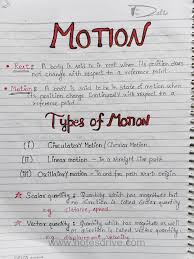 Date
MOTION
• Rest : A body is said to in rest when its position does
not change with respect to a reference point.
• Motion : A body is said to be in state of motion when
its position change continuously with respect to
reference point.
Types of MOTION
(I) Circulatory Motion / Circular Motion
(II) Linear motion – In a straight line path
(III) Oscillatory motion – To and fro path worth origin
* Scalar quantity : Quantity which has magnitude but
no direction is called scalar quantity
e.g. distance, speed
* Vector quantity : Quantity which has magnitude as well
as direction is called Vector quantity
e.g. displacement, velocity
www.notesdrive.com